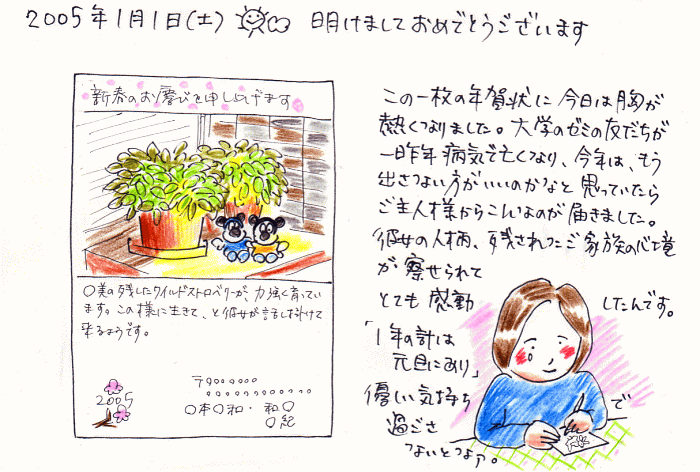 2005年1月1日(土) 明けましておめでとうございます
新春のお慶びを申し上げます
〇美の残したワイルドストロベリーが、力強く育ってい
ます。この様に生きて、と彼女が話し掛けて
来るようです。
〒○○○○○○○
○○○○○○○○○○○○
〇本〇和・和〇
〇紀
2005
この一枚の年賀状に今日は胸が
熱くなりました。大学のゼミの友だちが
一昨年病気で亡くなり、今年は、もう
出さない方がいいのかなと思っていたら
ご主人様からこんなのが届きました。
彼女の人柄、残されたご家族の心境
が察せられて
とても感動したんです。
「1年の計は
元旦にあり」
優しい気持ちで
過ごさ
ないとなァ。